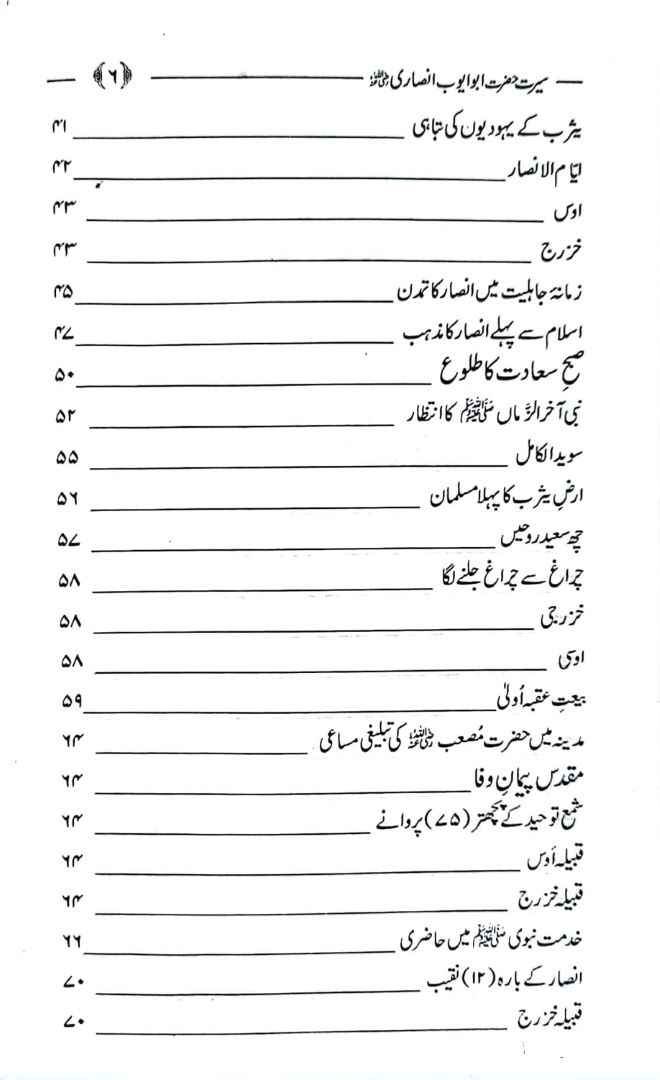 سیرت حضرت ابو ایوب انصاری رضی اللہ عنہ ﴿۶﴾
یثرب کے یہودیوں کی تباہی ۴۱
ایّام الانصار ۴۲
اوس ۴۳
خزرج ۴۳
زمانۂ جاہلیت میں انصار کا تمدن ۴۵
اسلام سے پہلے انصار کا مذہب ۴۷
صبحِ سعادت کا طلوع ۵۰
نبی آخر الزَّماں ﷺ کا انتظار ۵۲
سوید الکامل ۵۵
ارضِ یثرب کا پہلا مسلمان ۵۶
چھ سعید روحیں ۵۷
چراغ سے چراغ جلنے لگا ۵۸
خزرجی ۵۸
اوسی ۵۸
بیعتِ عقبہ اُولیٰ ۵۹
مدینہ میں حضرت مُصعب رضی اللہ عنہ کی تبلیغی مساعی ۶۴
مقدس پیمانِ وفا ۶۴
شمع توحید کے پچھتر (۷۵) پروانے ۶۴
قبیلہ اَوس ۶۴
قبیلہ خزرج ۶۴
خدمت نبوی ﷺ میں حاضری ۶۶
انصار کے بارہ (۱۲) نقیب ۷۰
قبیلہ خزرج ۷۰